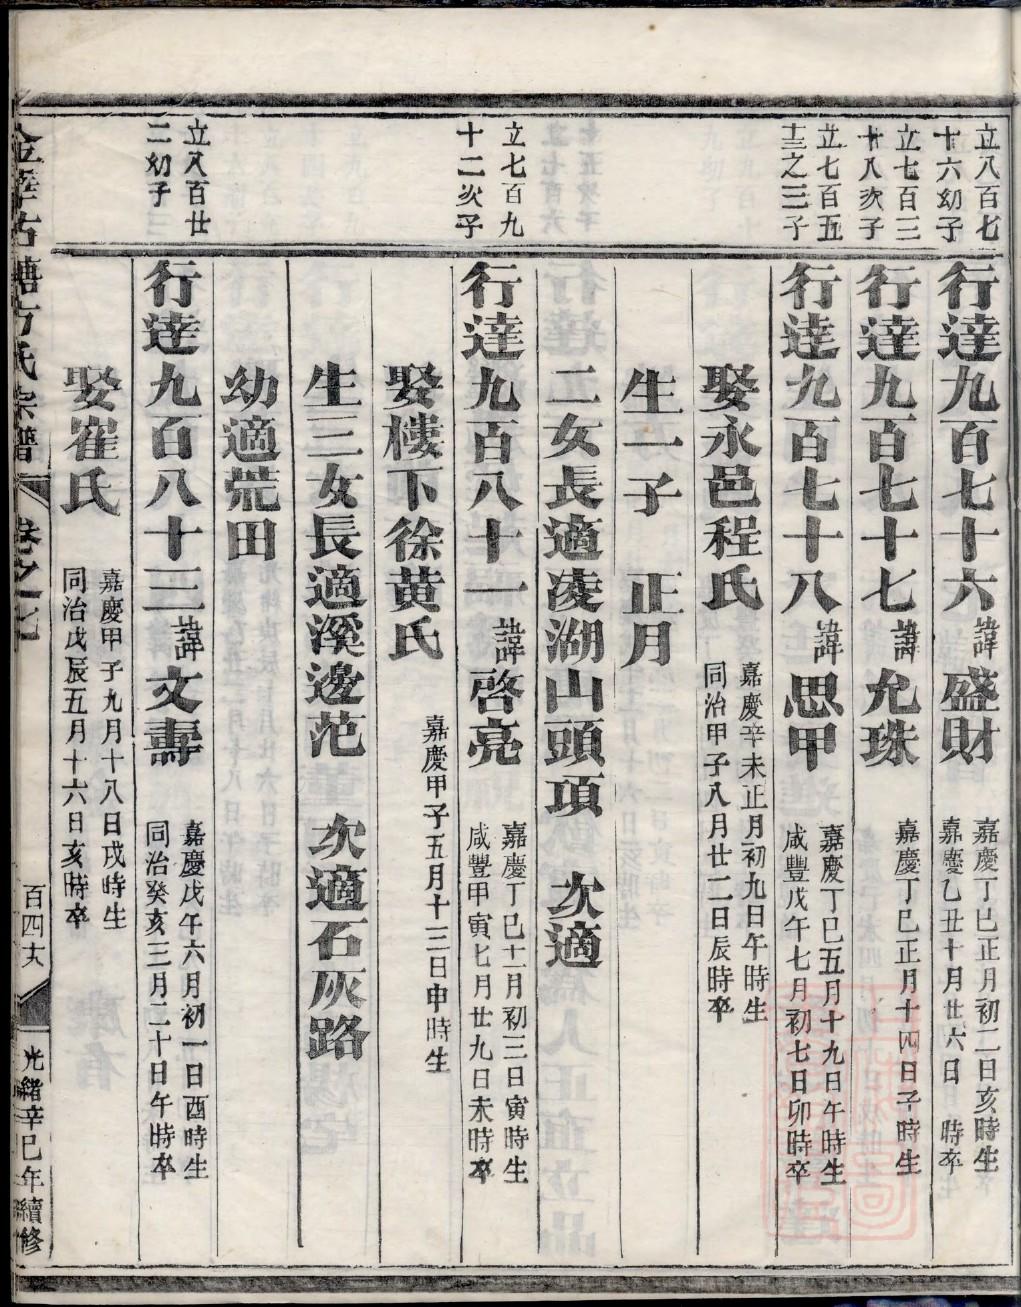 立八百七
十六幼子
行達九百七十六
諱
盛財
嘉慶丁巳正月初二日亥時生
嘉慶乙丑十月廿六日 時卒
立七百三
十八次子
行達九百七十七
諱
允珠
嘉慶丁巳正月十四日子時生
立七百五
十三之三子
行達九百七十八
諱
思甲
嘉慶丁巳五月十九日午時生
咸豐戊午七月初七日卯時卒
娶永邑程氏
嘉慶辛未正月初九日午時生
同治甲子八月廿二日辰時卒
生一子 正月
二女長適凌湖山頭項 次適
立七百九
十二次子
行達九百八十一
諱
啓亮
嘉慶丁巳十一月初三日寅時生
咸豐甲寅七月廿九日未時卒
娶樓下徐黄氏
嘉慶甲子五月十三日申時生
生三女長適溪邊范 次適石灰路
幼適荒田
立八百廿
二幼子
行達九百八十三
諱
文壽
嘉慶戊午六月初一日酉時生
同治癸亥三月二十日午時卒
娶崔氏
嘉慶甲子九月十八日戌時生
同治戊辰五月十六日亥時卒
方氏宗譜
卷之七
百四十六
光緒辛巳年續修